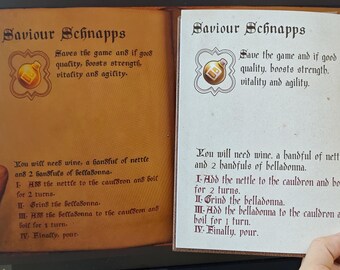 Saviour Schnapps
Saves the game and if good
quality, boosts strength,
vitality and agility.
You will need wine, a handful of nettle
and 2 handfuls of belladonna.
I. Add the nettle to the cauldron and boil
for 2 turns.
II. Grind the belladonna.
III. Add the belladonna to the cauldron and
boil for 1 turn.
IV. Finally, pour.
Saviour Schnapps
Save the game and if good
quality, boosts strength,
vitality and agility.
You will need wine, a handful of nett
and 2 handfuls of belladonna.
I. Add the nettle to the cauldron and boi
for 2 turns.
II. Grind the belladonna.
III. Add the belladonna to the cauldron a
boil for 1 turn.
IV. Finally, pour.